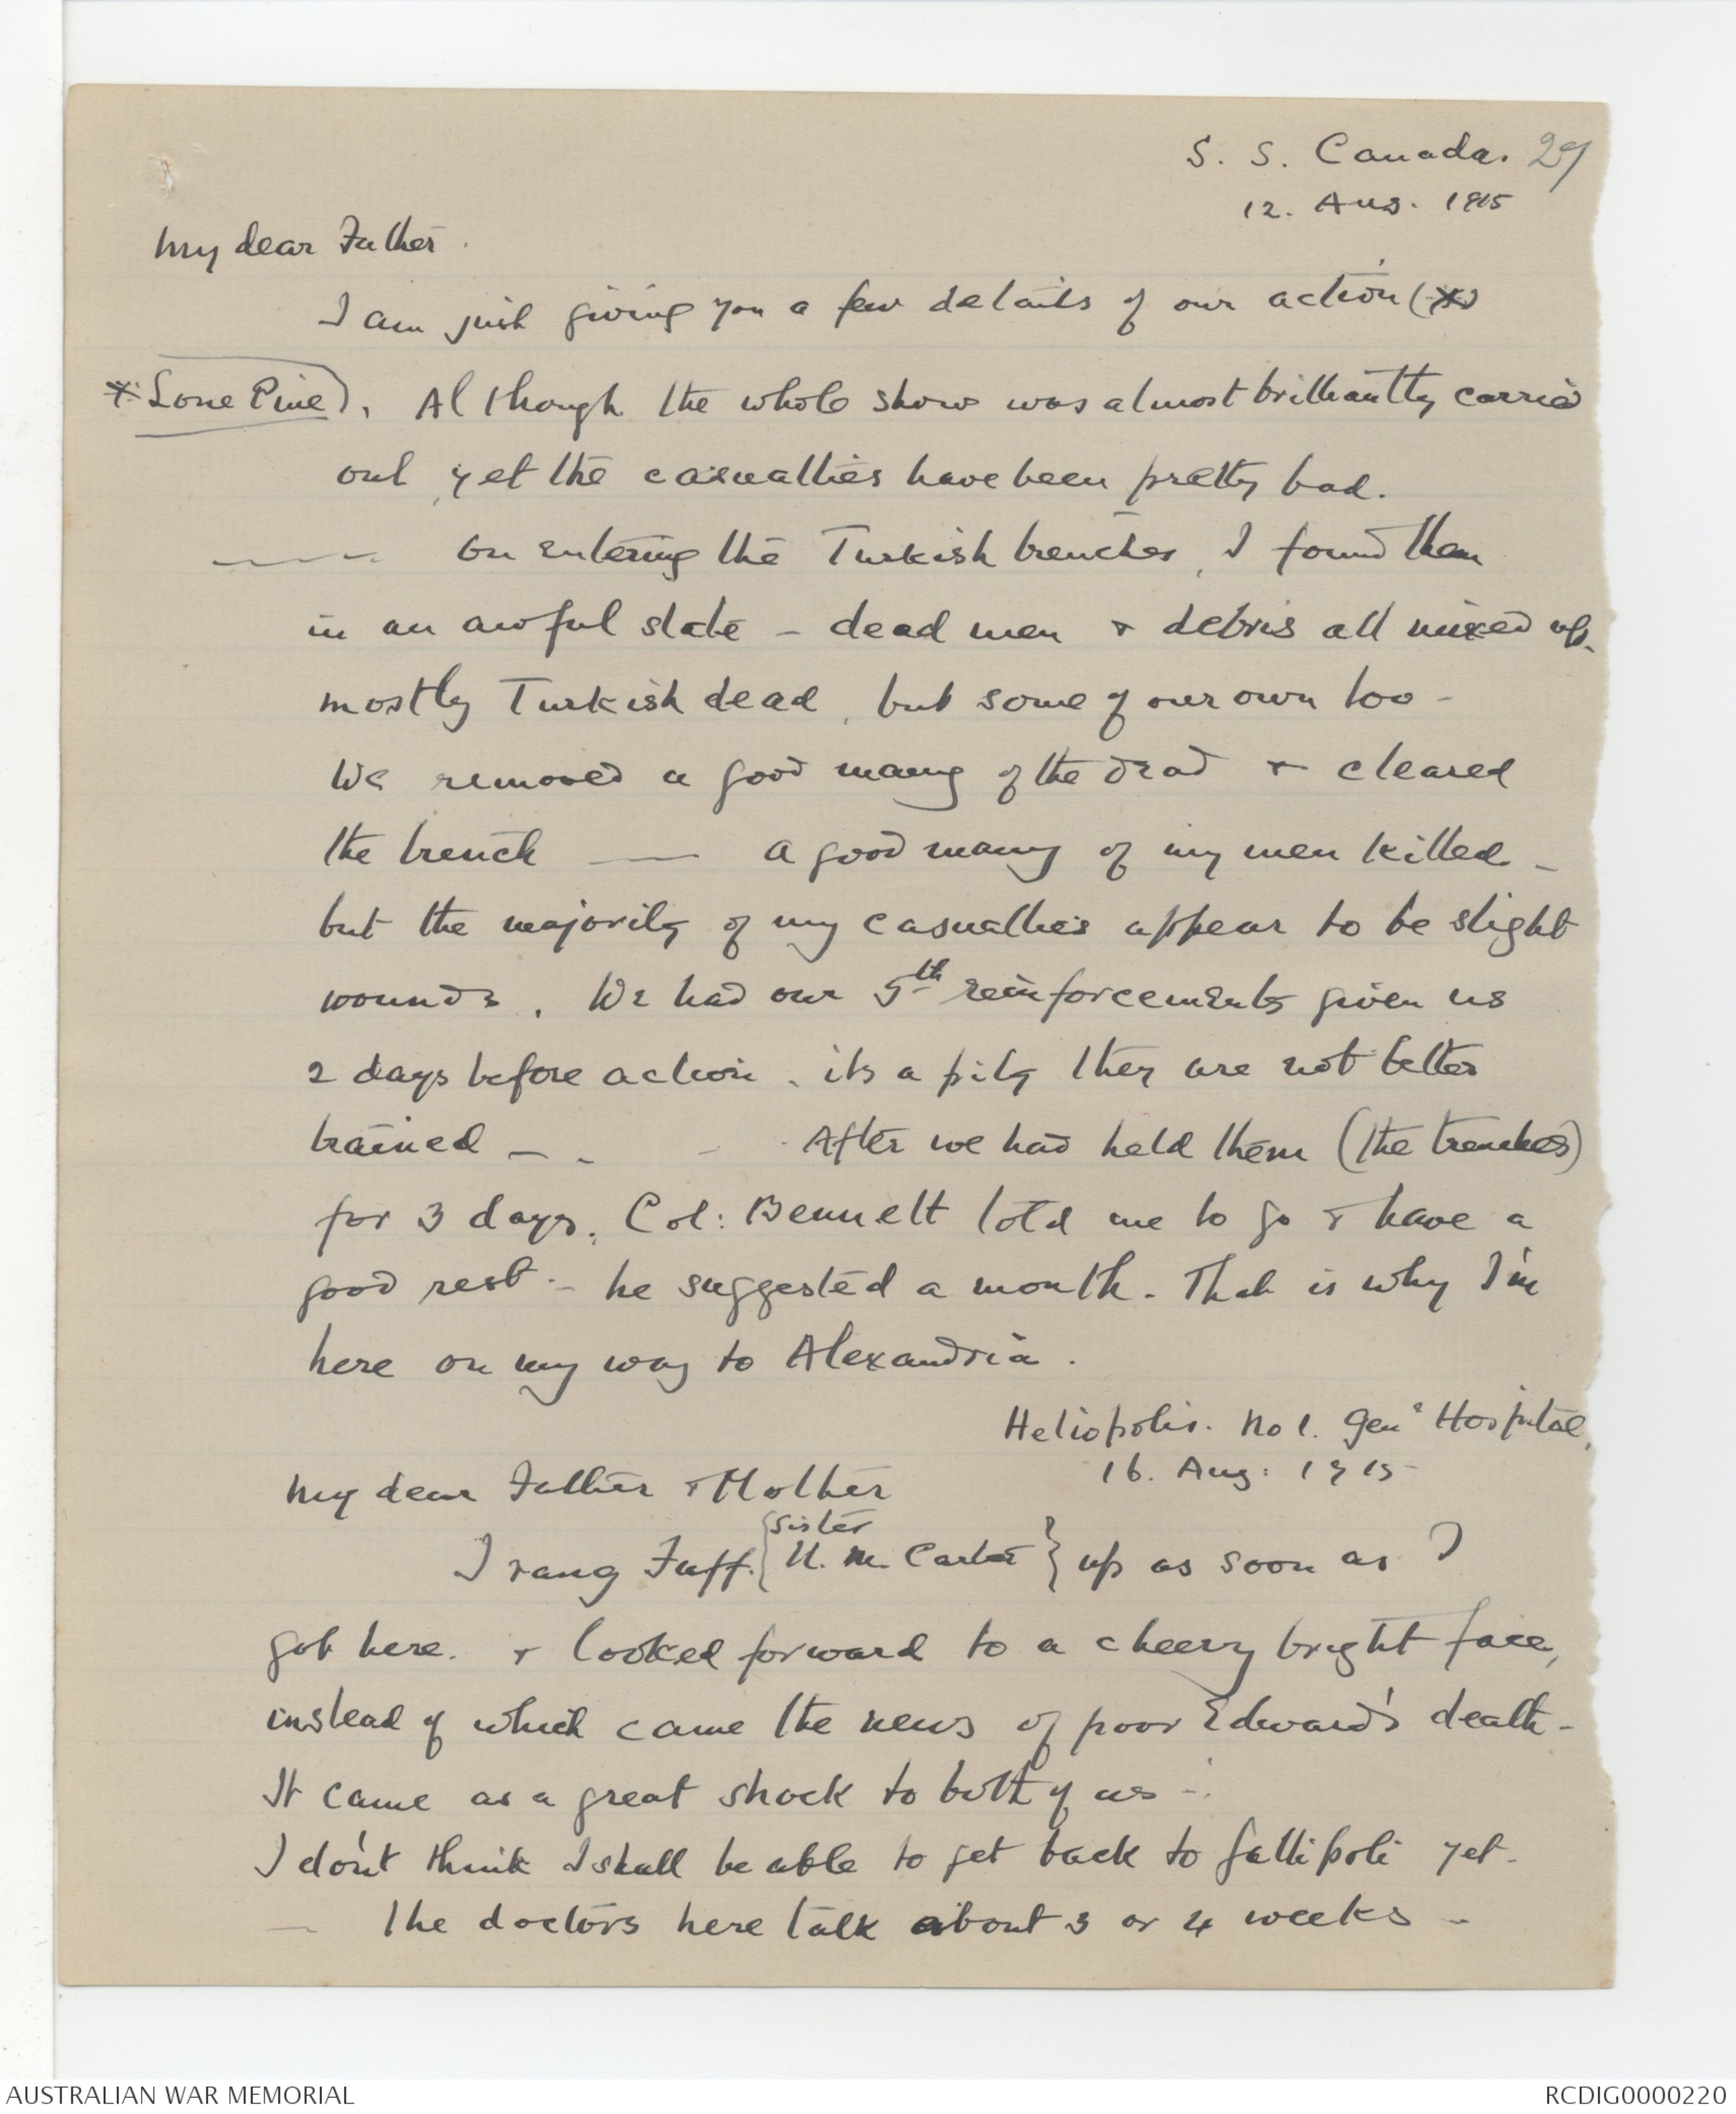 S. S. Canada. 29
12. Aug. 1915
My dear Father.
I am just giving you a few details of our action (*)
* Lone Pine). Although the whole show was almost brilliantly carried
out, yet the casualties have been pretty bad.
On entering the Turkish trenches, I found them
in an awful state - dead men & debris all mixed up.
mostly Turkish dead, but some of our own too -
We removed a good many of the dead & cleared
the trench —— A good many of my men killed -
but the majority of my casualties appear to be slight
wounds. We had our 5th reinforcements given us
2 days before action. its a pity they are not better
trained - - - After we had held them (the trenches)
for 3 days, Col: Bennett told me to go & have a
good rest - he suggested a month. That is why I'm
here on my way to Alexandria.
Heliopolis. No 1. Genl Hospital,
16. Aug: 1915
My dear Father & Mother
I rang Tuff. {Sister U. M. Carter} up as soon as I
got here. & looked forward to a cheery bright face,
instead of which came the news of poor Edward's death -
It came as a great shock to both of us -
I don't think I shall be able to get back to Gallipoli yet -
— The doctors here talk about 3 or 4 weeks -
AUSTRALIAN WAR MEMORIAL
RCDIG0000220